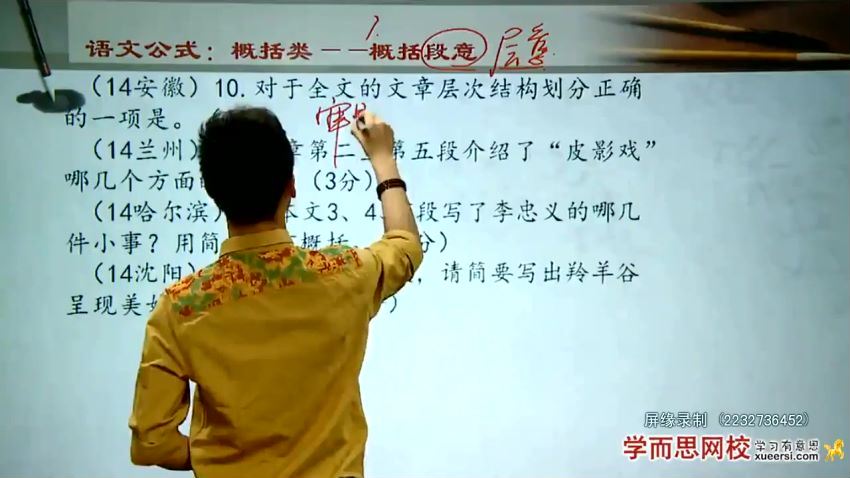 语文公式：概括类——概括段意 层意
（14安徽）10.对于全文的文章层次结构划分正确
的一项是。（
（14兰州） 章第二至第五段介绍了“皮影戏”
哪几个方面的 （3分）
（14哈尔滨） 本文3、4 段写了李忠义的哪几
件小事？用简 概括 分）
（14沈阳） ，请简要写出羚羊谷
呈现美 ）
审
屏缘录制（2232736452）
学而思网校 学习有意思
xueersi.com